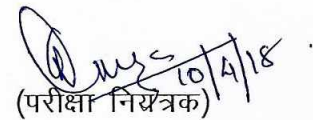 10/4/18
(परीक्षा नियंत्रक)